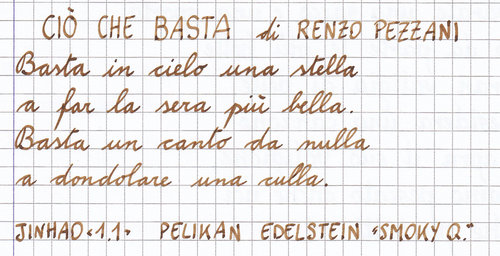 CIÒ CHE BASTA di RENZO PEZZANI
Basta in cielo una stella
a far la sera più bella.
Basta un canto da nulla
a dondolare una culla.
JINHAO «1.1» PELIKAN EDELSTEIN "SMOKY Q."